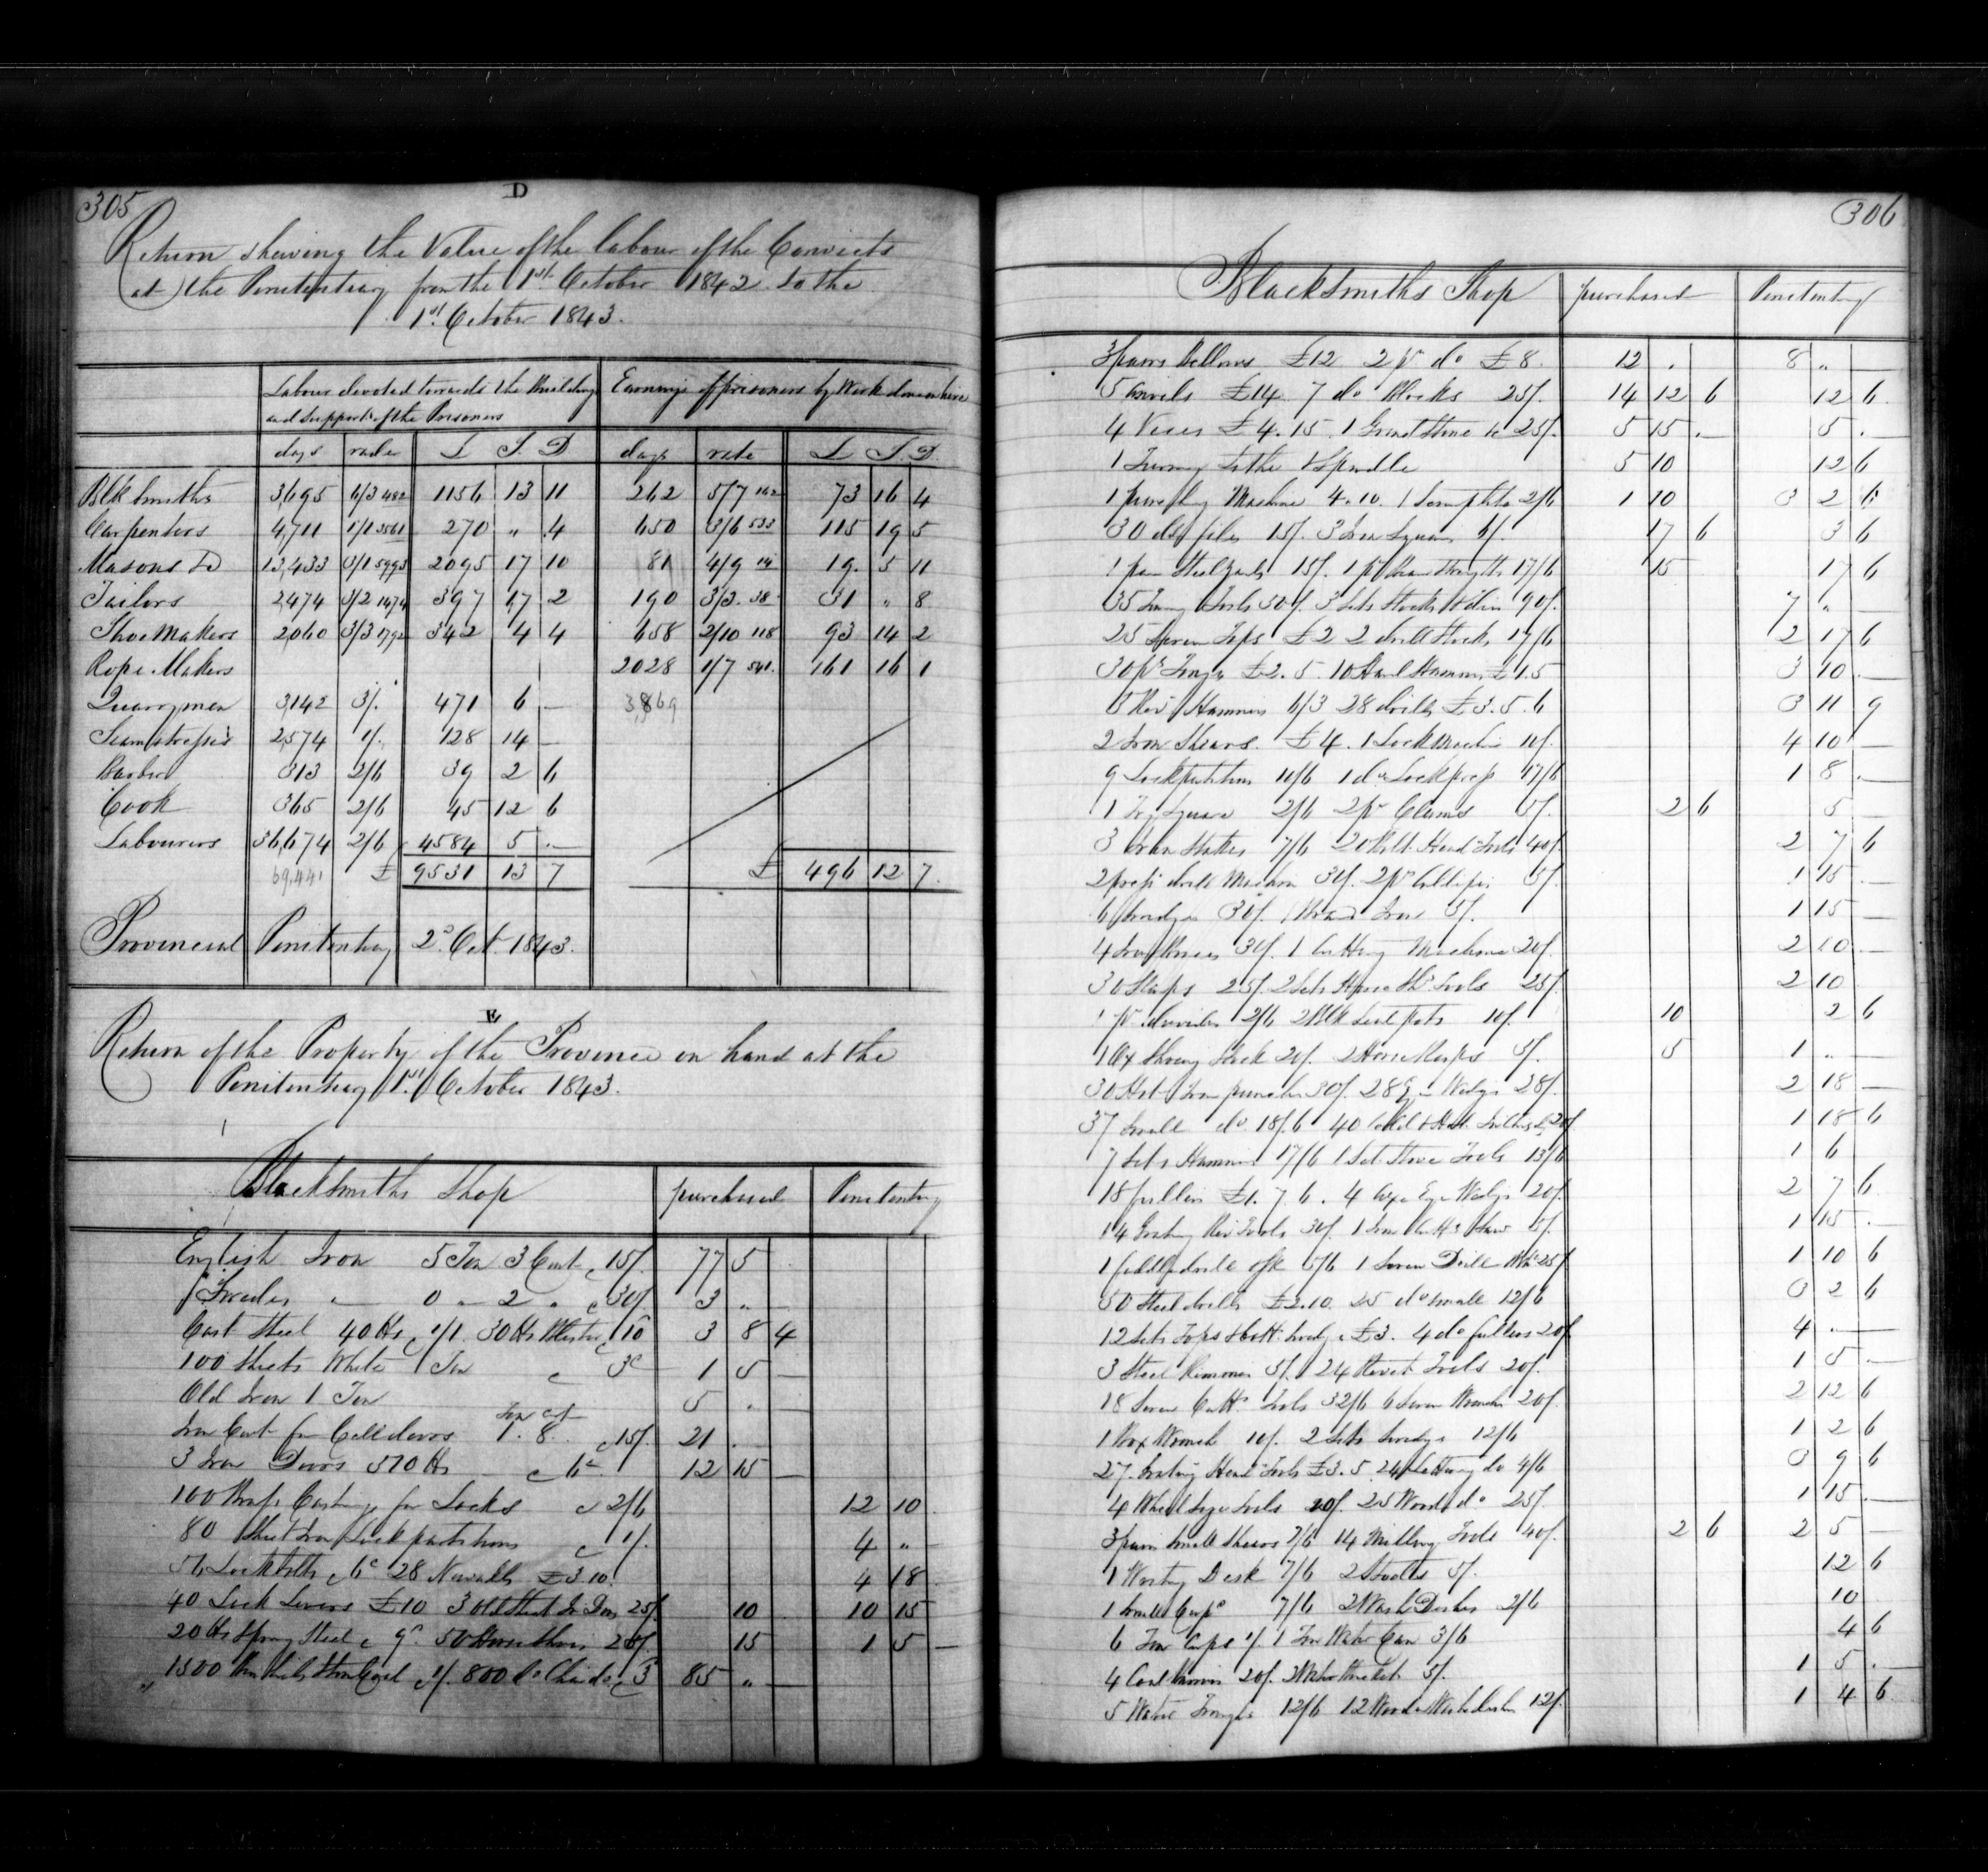 305
D
Return shewing the Value of the labour of the Convicts
at the Penitentiary from the 1st October 1842 to the
1st October 1843.
Labour devoted towards the Building and Support of the Prisoners
Earnings of prisoners by Work done on hire
days rate £ S D days rate £ S D
Blk Smiths 3,695 6/3 482 1156 13 11 262 5/7 162 73 16 4
Carpenters 4,711 1/1 3561 270 " 4 650 3/6 533 115 19 5
Masons Do 13,433 3/1 5993 2095 17 10 81 4/9 14 19 5 11
Tailors 2,474 3/2 1474 397 17 2 190 3/3 38 31 " 8
Shoe Makers 2,060 3/3 1792 342 4 4 658 2/10 118 93 14 2
Rope Makers 2028 1/7 541 161 16 1
Quarrymen 3,142 3/. 471 6 — 3,869
Seamstresses 2,574 1/. 128 14 —
Barber 313 2/6 39 2 6
Cook 365 2/6 45 12 6
Labourers 36,674 2/6 4584 5 —
69,441 £ 9531 13 7 £ 496 12 7
Provincial Penitentiary 2d Oct. 1843.
E
Return of the Property of the Province on hand at the
Penitentiary 1st October 1843.
Blacksmiths Shop purchased Penitentiary
English Iron 5 Ton 3 Cwt c 15/. 77 5
Swedes " 0 " 2 " c 30/. 3 " —
Cast Steel 40 lbs c 1/1 30 lbs Blister c 10 3 8 4
100 Sheets White Tin c 3d 1 5 —
Old Iron 1 Ton 5 " —
Iron Cast for Cell doors Ton cwt 1. 8 c 15/. 21 —
3 Iron Doors 510 lbs c 6d 12 15 —
100 Brass Castings for Locks c 2/6 12 10
80 Sheet Iron Lock partitions c 1/. 4 " —
56 Lock bolts c 6d 28 £3.10. 4 18
40 Lock Levers £10 3 old Sheet Ir Doors 25/. 10 10 15
20 lbs Spring Steel c 9d 50 Horse Shoes 25/. 15 1 5 —
1500 Bushels Stone Coal c 1/. 800 Do Char do c 3 85 " —
306
Blacksmiths Shop purchased Penitentiary
3 pairs bellows £12 2 pr do £8. 12 . 8 " —
5 anvils £14 7 do Blocks 25/. 14 12 6 12 6
4 Vices £4.15. 1 Grind Stone 25/. 5 15 — 5 —
1 Turning Lathe & Spindle 5 10 12 6
1 punching Machine 4.10. 1 2/6 1 10 3 2 6
30 old files 15/. 3 Iron Squares 6/. 17 6 3 6
1 pair Steelyards 15/. 1 pr 17/6 15 17 6
35 Turning Tools 50/. 3 Sets Stocks & dies 90/. 7 "
25 Screw Taps £2 2 drill Stocks 17/6 2 17 6
30 prs Tongs £2.5. 10 Hand Hammers £1.5 3 10 —
3 Riv Hammers 6/3 28 drills £3.5.6 3 11 9
2 Iron Shears £4. 1 Lock Machine 10/. 4 10 —
9 Lock partitions 10/6 1 do Lock press 17/6 1 8 —
1 Try Square 2/6 2 pr Clams 5/. 2 6 5
3 Iron Stakes 7/6 20 Bolt Head Tools 40/. 2 7 6
2 press drill Machine 30/. 2 prs Callipers 5/. 1 15 —
6 Swedges 30/. 1 Brand Iron 5/. 1 15 —
4 Iron Braces 30/. 1 Cutting Machine 20/. 2 10 —
30 Slaps 25/. 2 Sets Horse Sh Tools 25/. 2 10
1 pr dividers 2/6 2 Blk Lead pots 10/. 10 2 6
1 Ox Shoeing Rack 20/. 2 Horse Rasps 5/. 5 1 " —
30 Hot Iron punches 30/. 28 Eye Wedges 28/. 2 18 —
37 Small do 18/.6 40 Cold & 20/. 1 18 6
7 Sets Hammers 17/6 1 Set Stove Tools 13/6 1 6
18 fullers £1.7.6. 4 Axe Eye Wedges 20/. 2 7 6
14 Grating Riv Tools 30/. 1 Iron 5/. 1 15 —
1 fiddle drill 5/6 1 Screw Drill 25/ 1 10 6
50 Steel drills £2.10. 25 do small 12/6 3 2 6
12 Sets Tops & Bott Swedges £3. 4 do fullers 20/ 4 —
3 Steel Rimmers 5/. 24 Rivet Tools 20/. 1 5 —
18 Screw Tools 32/6 6 Screw Wrenches 20/. 2 12 6
1 Box Wrench 10/. 2 Sets Swedges 12/6 1 2 6
27 Grating Head Tools £3.5. 24 do 4/6 3 9 6
4 Wheel Tools 10/. 25 Wood do 25/. 1 15 —
3 pairs small Shears 7/6 14 Milling Tools 40/. 2 6 2 5 —
1 Writing Desk 7/6 2 Stools 5/. 12 6
1 small Cupd 7/6 2 Wash Dishes 2/6 10
6 Tin Cups 1/. 1 Tin Water Can 3/6 4 6
4 Coal 20/. 2 Water Buckets 5/. 1 5 —
5 Water Troughs 12/6 12 Wooden Wash dishes 12/. 1 4 6